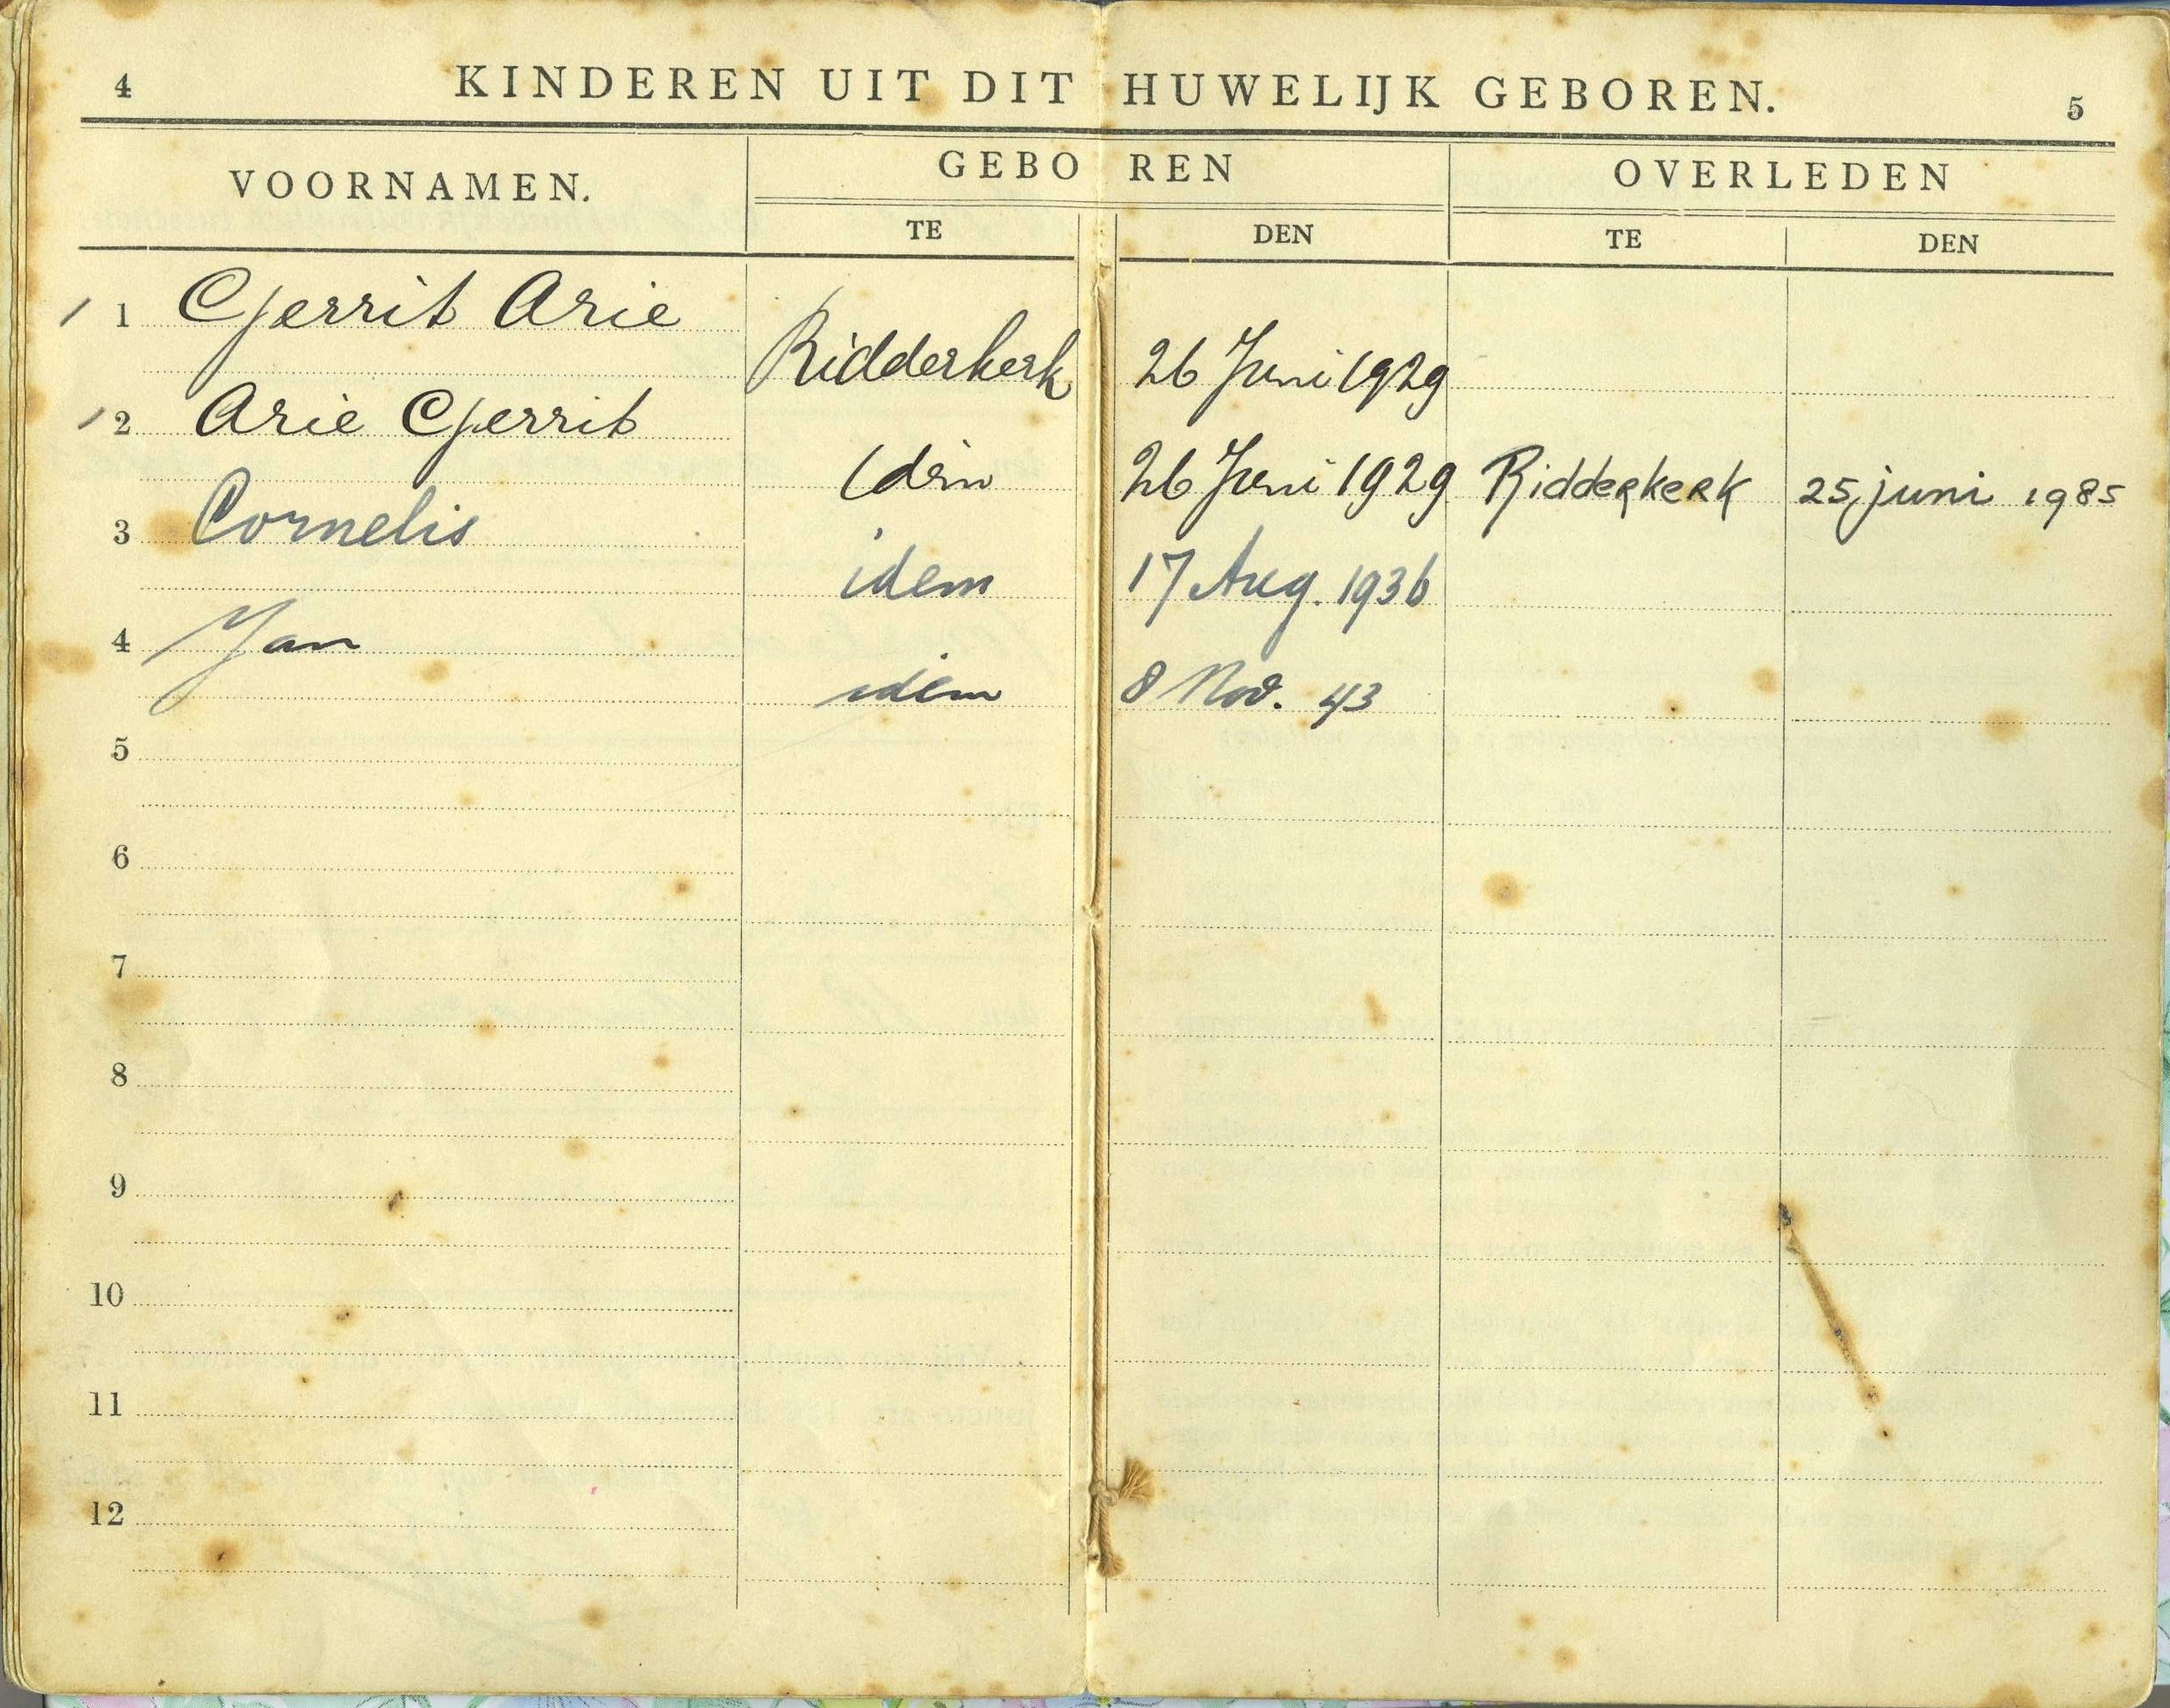 4 KINDEREN UIT DIT HUWELIJK GEBOREN. 5
VOORNAMEN. GEBOREN OVERLEDEN
TE DEN TE DEN
1 Gerrit Arie
Ridderkerk 26 Juni 1929
2 Arie Gerrit
Idem 26 Juni 1929 Ridderkerk 25 juni 1985
3 Cornelis
idem 17 Aug. 1936
4 Jan
idem 8 Nov. 43
5
6
7
8
9
10
11
12